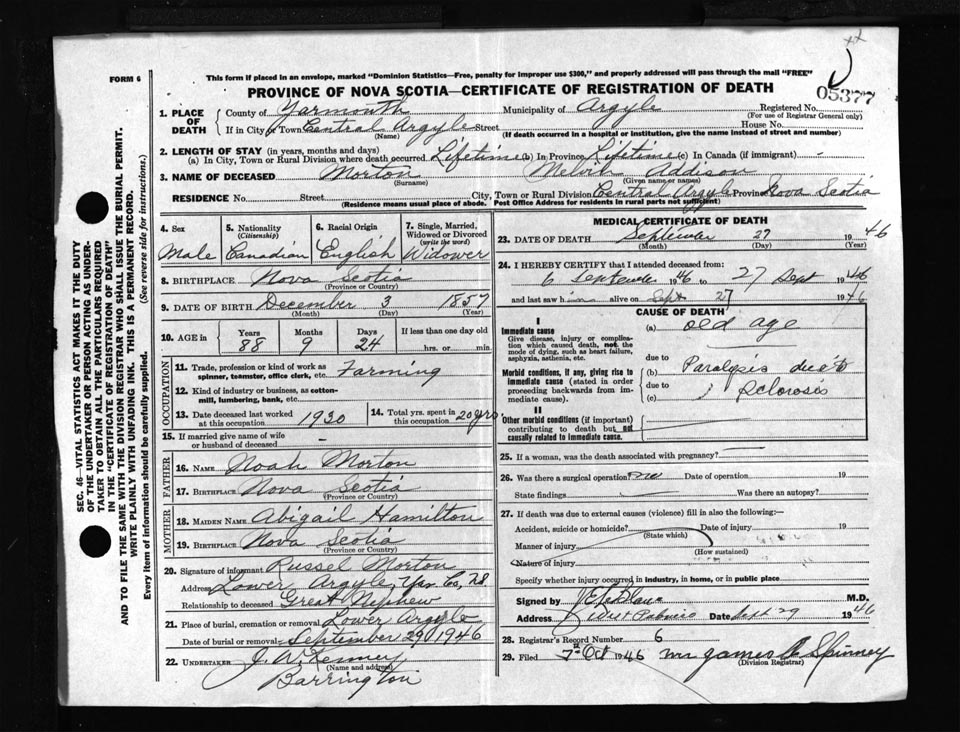 FORM 6
This form if placed in an envelope, marked "Dominion Statistics—Free, penalty for improper use $300," and properly addressed will pass through the mail "FREE"
PROVINCE OF NOVA SCOTIA—CERTIFICATE OF REGISTRATION OF DEATH
05377
1. PLACE OF DEATH
County of Yarmouth Municipality of Argyle Registered No.
(For use of Registrar General only)
If in City or Town Central Argyle Street House No.
(Name) (If death occurred in a hospital or institution, give the name instead of street and number)
2. LENGTH OF STAY (in years, months and days)
(a) In City, Town or Rural Division where death occurred Lifetime (b) In Province Lifetime (c) In Canada (if immigrant) -
3. NAME OF DECEASED Morton Melvin Addison
(Surname) (Given name or names)
RESIDENCE No. Street City, Town or Rural Division Central Argyle Province Nova Scotia
(Residence means usual place of abode. Post Office Address for residents in rural parts not sufficient)
4. Sex
Male
5. Nationality
(Citizenship)
Canadian
6. Racial Origin
English
7. Single, Married, Widowed or Divorced
(write the word)
Widower
8. BIRTHPLACE Nova Scotia
(Province or Country)
9. DATE OF BIRTH December 3 1857
(Month) (Day) (Year)
10. AGE in Years Months Days If less than one day old
88 9 24 hrs. or min.
OCCUPATION
11. Trade, profession or kind of work as spinner, teamster, office clerk, etc. Farming
12. Kind of industry or business, as cotton-mill, lumbering, bank, etc.
13. Date deceased last worked at this occupation 1930
14. Total yrs. spent in this occupation 20 yrs
15. If married give name of wife or husband of deceased -
FATHER
16. NAME Noah Morton
17. BIRTHPLACE Nova Scotia
(Province or Country)
MOTHER
18. MAIDEN NAME Abigail Hamilton
19. BIRTHPLACE Nova Scotia
(Province or Country)
20. Signature of informant Russel Morton
Address Lower Argyle, Yar. Co., NS
Relationship to deceased Great Nephew
21. Place of burial, cremation or removal Lower Argyle
Date of burial or removal September 29 1946
22. UNDERTAKER J. W. Kenney
(Name and address)
Barrington
MEDICAL CERTIFICATE OF DEATH
23. DATE OF DEATH September 27 1946
(Month) (Day) (Year)
24. I HEREBY CERTIFY that I attended deceased from:
6 September 1946 to 27 Sept 1946
and last saw him alive on Sept 27 1946
CAUSE OF DEATH
I
Immediate cause
Give disease, injury or complication which caused death, not the mode of dying, such as heart failure, asphyxia, asthenia, etc.
(a) old age
due to
Morbid conditions, if any, giving rise to immediate cause (stated in order proceeding backwards from immediate cause).
(b) Paralysis due to
due to
(c) Sclerosis
II
Other morbid conditions (if important) contributing to death but not causally related to immediate cause.
25. If a woman, was the death associated with pregnancy?
26. Was there a surgical operation? no Date of operation 19
State findings Was there an autopsy?
27. If death was due to external causes (violence) fill in also the following:—
Accident, suicide or homicide? Date of injury 19
(State which)
Manner of injury
(How sustained)
Nature of injury
Specify whether injury occurred in industry, in home, or in public place
Signed by J E LeBlanc M.D.
Address West Pubnico Date Sept 29 1946
28. Registrar's Record Number 6
29. Filed 7th Oct 1946 Mr James A Spinney
(Division Registrar)
SEC. 46—VITAL STATISTICS ACT MAKES IT THE DUTY
OF THE UNDERTAKER OR PERSON ACTING AS UNDER-
TAKER TO OBTAIN ALL THE PARTICULARS REQUIRED
IN THE "CERTIFICATE OF REGISTRATION OF DEATH"
AND TO FILE THE SAME WITH THE DIVISION REGISTRAR WHO SHALL ISSUE THE BURIAL PERMIT.
WRITE PLAINLY WITH UNFADING INK. THIS IS A PERMANENT RECORD.
Every item of information should be carefully supplied. (See reverse side for instructions.)